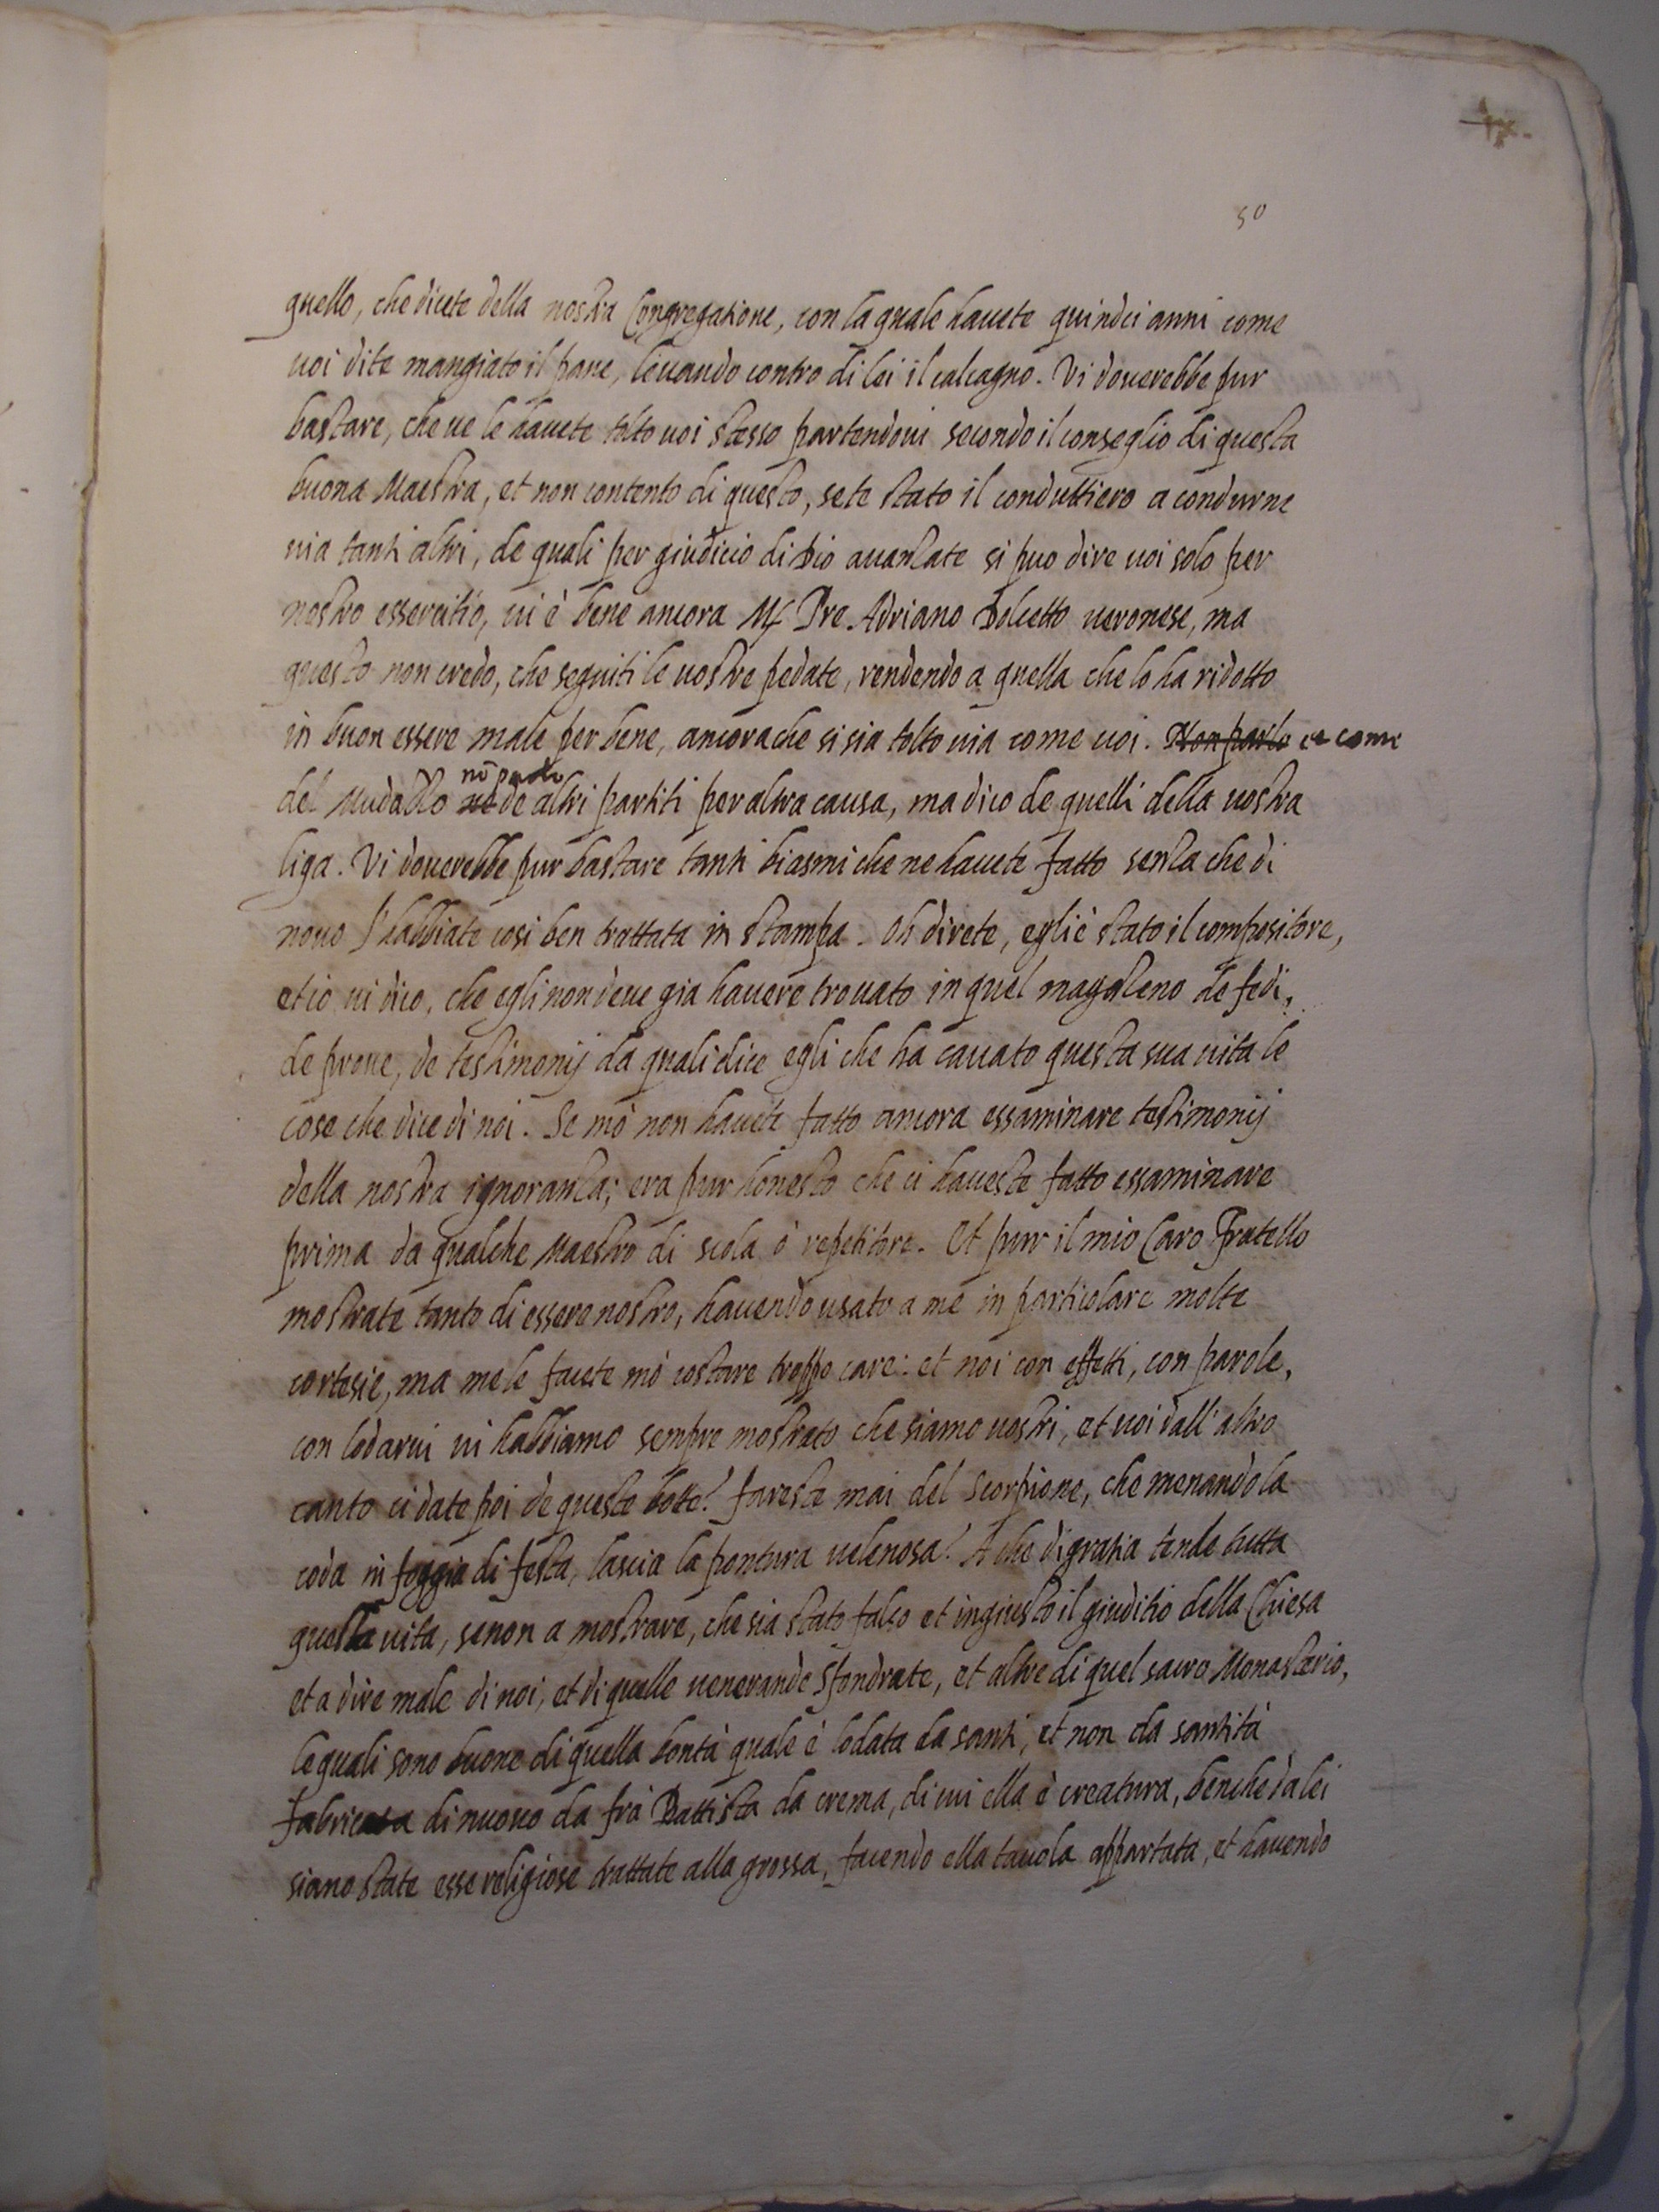 50
quello, che dicete della nostra Congregatione, con la quale havete quindici anni come
voi dite mangiato il pane, levando contro di lei il calcagno. Vi doverebbe pur
bastare, che ve le havete tolto voi stesso partendovi secondo il conseglio di questa
buona Maestra, et non contento di questo, sete stato il conduttiero a condurne
via tanti altri, de quali per giudicio di Dio avanzate si puo dire voi solo per
nostro essercitio, vi è bene ancora Mf Pre Adriano Dolcetto veronese, ma
questo non credo, che seguiti le vostre pedate, rendendo a quella che lo ha ridotto
in buon essere male per bene, ancora che si sia tolto via come voi. Non parlo et come
del Mudasso nō parlo ne de altri partiti per altra causa, ma dico de quelli della vostra
liga. Vi doverebbe pur bastare tanti biasmi che ne havete fatto senza che di
novo l'habbiate cosi ben trattata in stampa. Oh direte, egli è stato il compositore,
et io vi dico, che egli non deve gia havere trovato in quel magaleno de fedi,
de prove, de testimonij da quali dice egli che ha cavato questa sua vita le
cose che dice di noi. Se mò non havete fatto ancora essaminare testimonij
della nostra ignoranza; era pur honesto che ci haveste fatto essaminare
prima da qualche Maestro di scola ò repetitore. Et pur il mio Caro Fratello
mostrate tanto di essere nostro, havendo usato a me in particolare molte
cortesie, ma me le facete mò costare troppo care: et noi con effetti, con parole,
con lodarvi vi habbiamo sempre mostrato che siamo vostri, et voi dall' altro
canto ci date poi de queste botte? fareste mai del Scorpione, che menando la
coda in foggia di festa, lascia la pontura velenosa? A che di gratia tende tutta
quella vita, se non a mostrare, che sia stato falso et ingiusto il giuditio della Chiesa
et a dire male di noi, et di quelle venerande Sfondrate, et altre di quel sacro Monasterio,
le quali sono buone di quella bontà quale è lodata da santi, et non da santità
fabricata di nuovo da frà Battista da crema, di cui ella è creatura, benche da lei
siano state esse religiose trattate alla grossa, facendo ella tavola appartata, et havendo